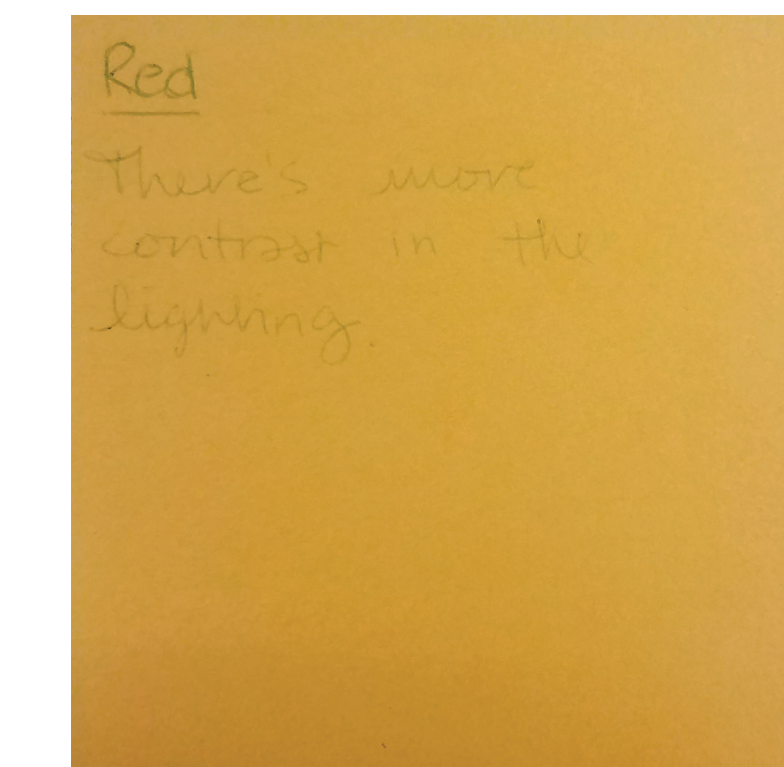 Red
There's more
contrast in the
lighting.